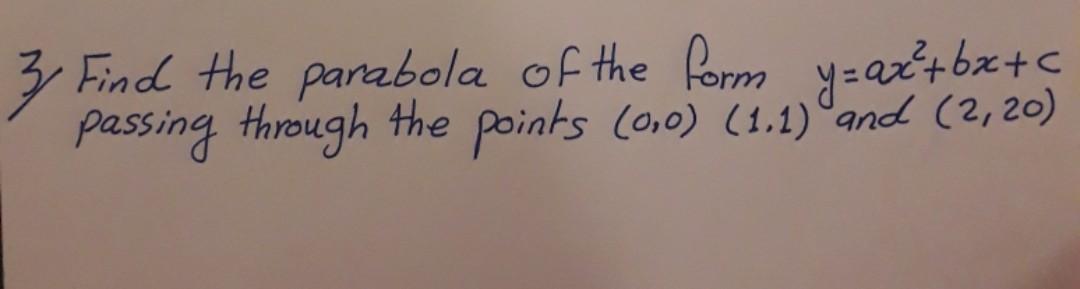 3/ Find the parabola of the form y=ax²+bx+c
passing through the points (0,0) (1.1) and (2,20)